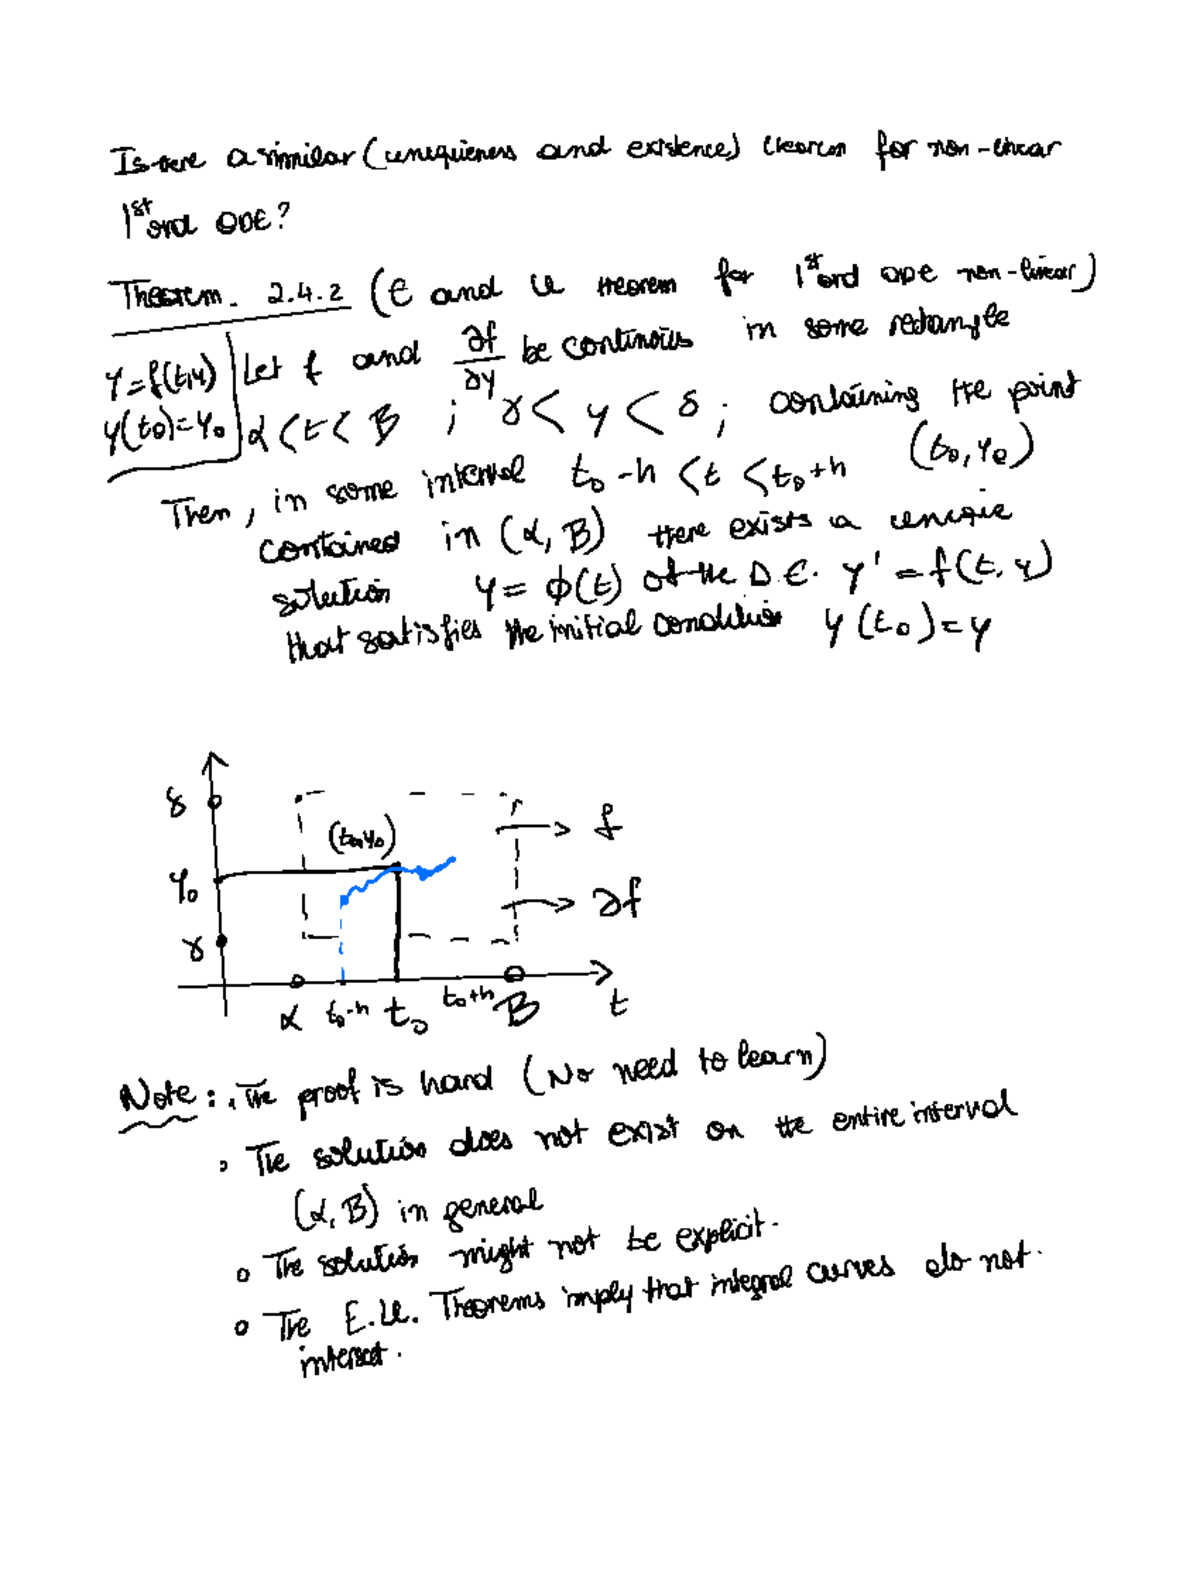 Is there a similar (uniqueness and existence) theorem for non-linear
1st ord ODE?
Theorem. 2.4.2 (E and U theorem for 1st ord ODE non-linear)
y = f(t,y)
y(t0) = y0
Let f and ∂f/∂y be continous in some rectangle
α < t < β ; γ < y < δ ; containing the point
(t0, y0)
Then, in some interval t0 - h < t < t0 + h
contained in (α, β) there exists a unique
solution y = ϕ(t) of the D.E. y' = f(t, y)
that satisfies the initial condition y(t0) = y
δ
(t0,y0)
f
y0
∂f
γ
α t0-h t0 t0+h β t
Note: . The proof is hard (No need to learn)
. The solution does not exist on the entire interval
(α, β) in general
o The solution might not be explicit.
o The E.U. Theorems imply that integral curves do not.
intersect.